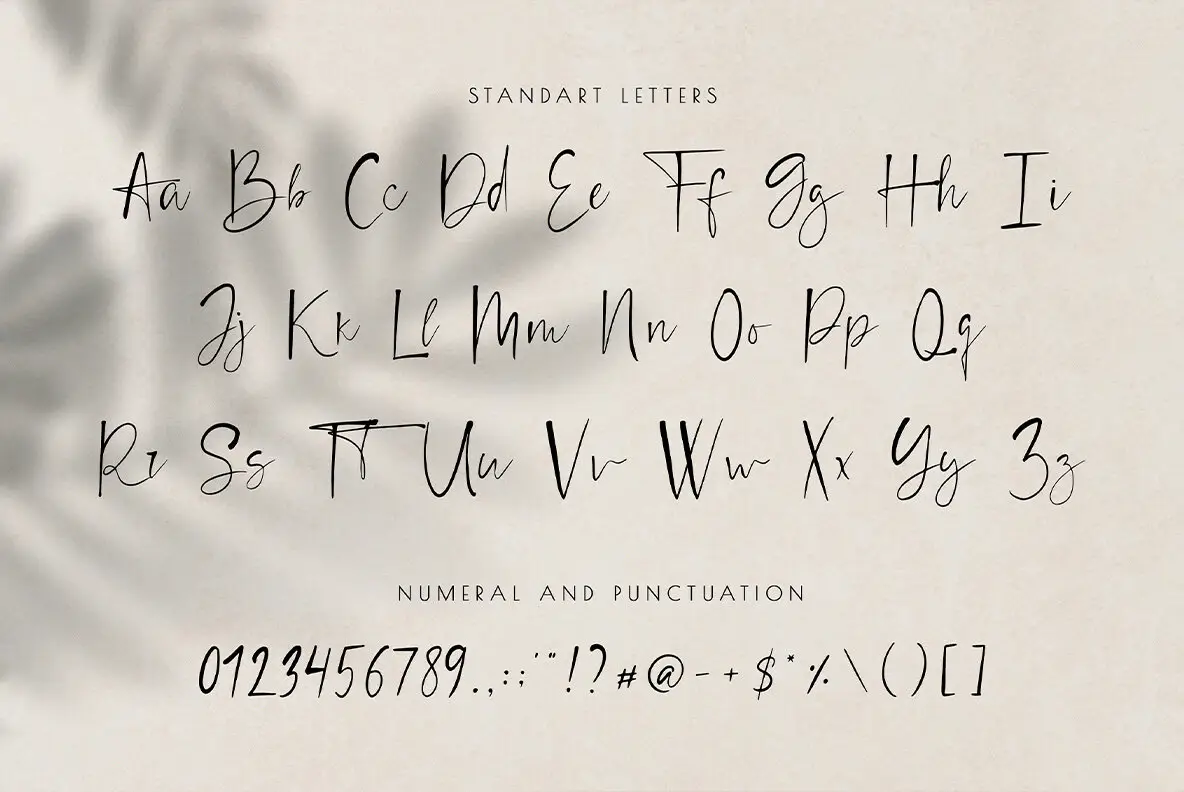 STANDART LETTERS
Aa Bb Cc Dd Ee Ff Gg Hh Ii
Jj Kk Ll Mm Nn Oo Pp Qq
Rr Ss Tt Uu Vv Ww Xx Yy Zz
NUMERAL AND PUNCTUATION
0123456789.,:;'"!?#@-+$*%\()[]